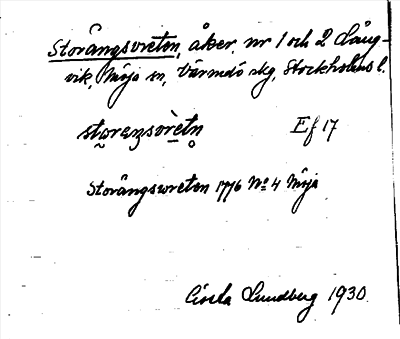 Storängsvreten, åker, nr 1 och 2 Lång-
vik, Möja sn, Värmdö skg, Stockholms l.
storeŋsvrètn̥ Ef 17
Storängswreten 1776 No 4 Möja
Gisela Lundberg 1930.